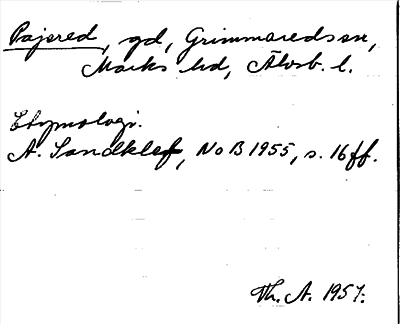 Pajered, gd, Grimmareds sn,
Marks hd, Älvsb. l.
Etymologi.
A. Sandklef, NoB 1955, s. 16 ff.
Th. A. 1957.